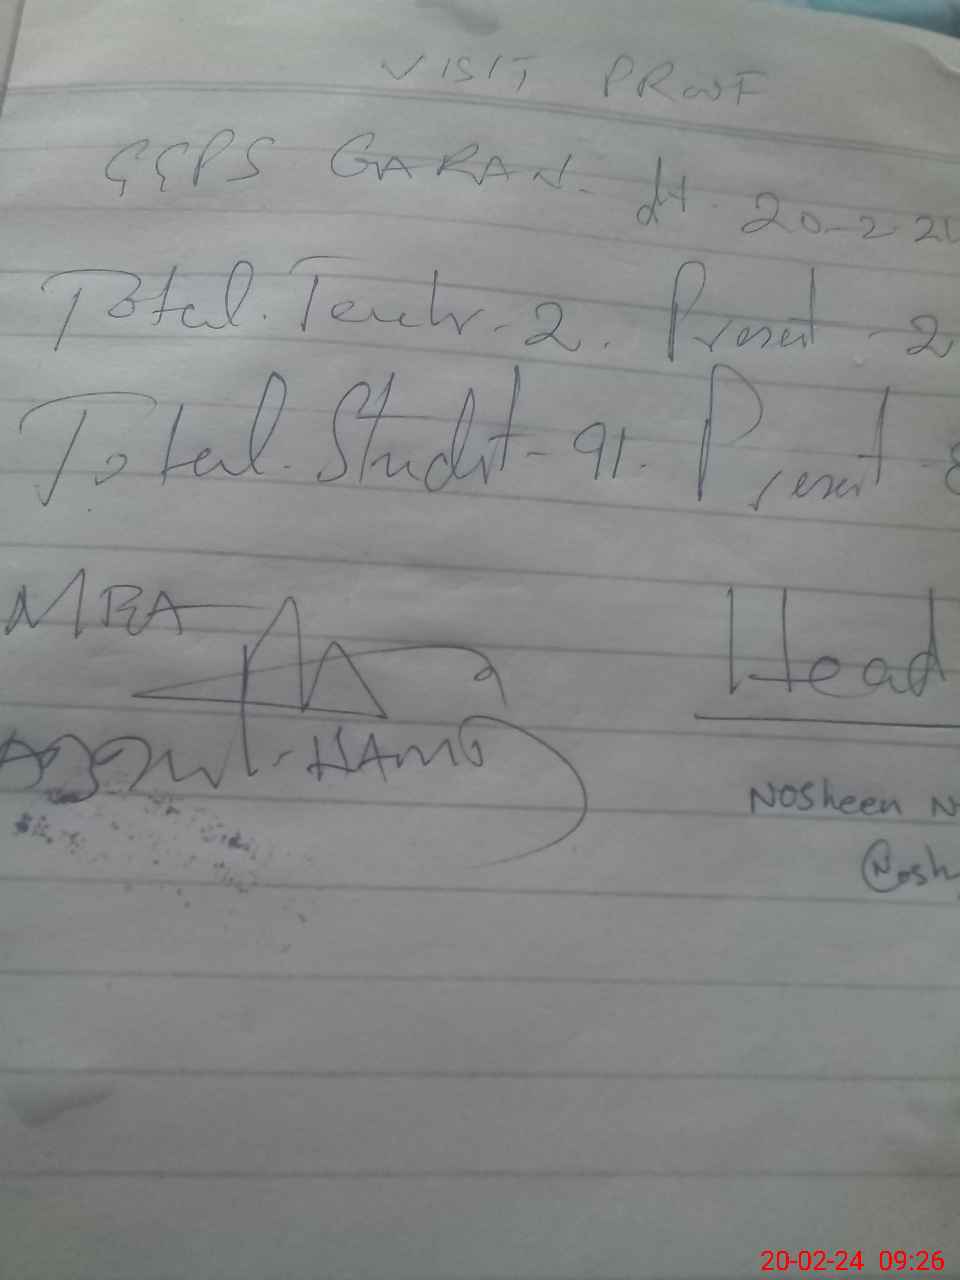 VISIT PROOF
GGPS GARAN. dt. 20-2-2
Total. Teachr-2. Present -2
Total. Studnt-91. Present -8
MEA
Head
Nosheen N
20-02-24 09:26